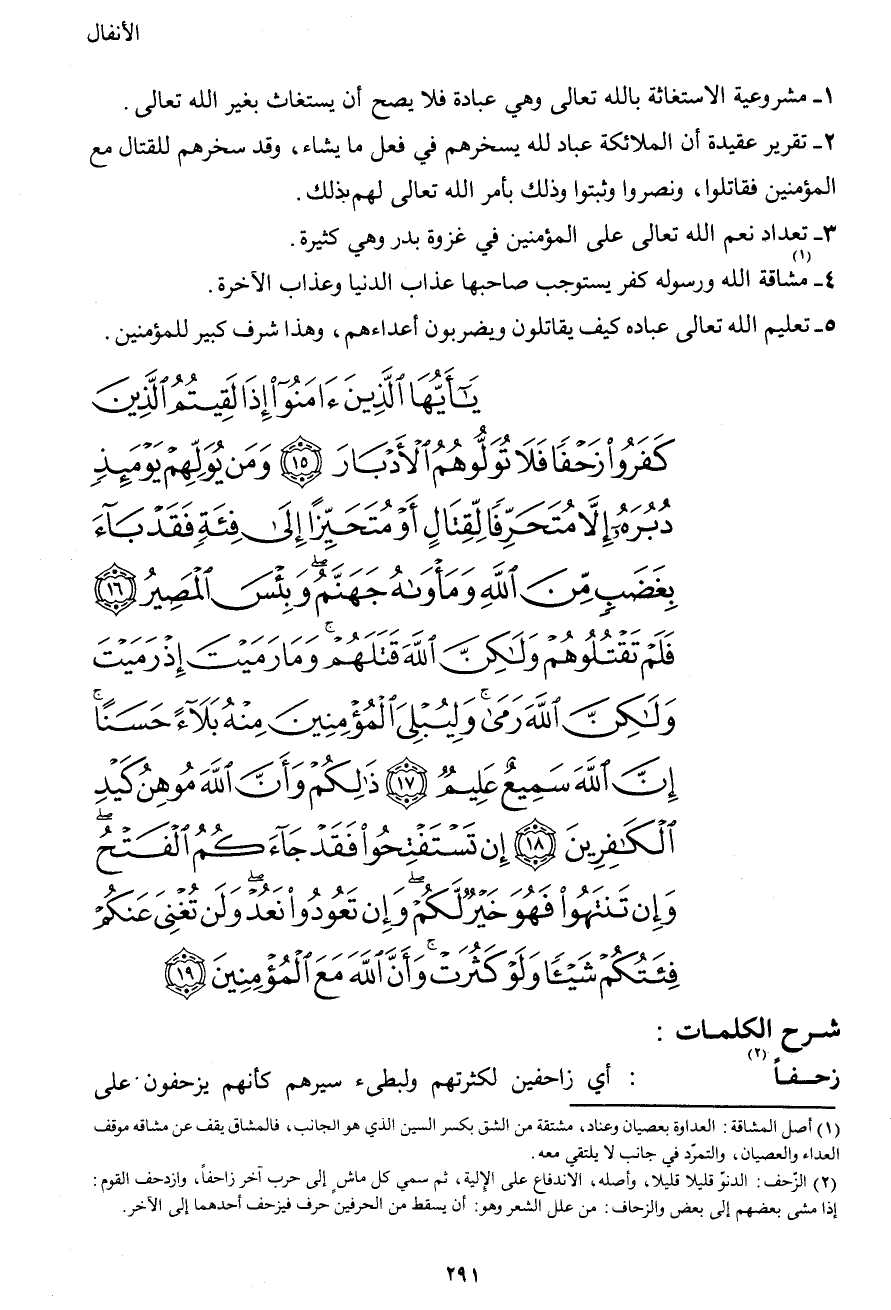 الأنفال
١ـ مشروعية الاستغاثة بالله تعالى وهي عبادة فلا يصح أن يستغاث بغير الله تعالى.
٢ـ تقرير عقيدة أن الملائكة عباد لله يسخرهم في فعل ما يشاء، وقد سخرهم للقتال مع
المؤمنين فقاتلوا، ونصروا وثبتوا وذلك بأمر الله تعالى لهم بذلك.
٣ـ تعداد نعم الله تعالى على المؤمنين في غزوة بدر وهي كثيرة.
٤ـ مشاقة(١) الله ورسوله كفر يستوجب صاحبها عذاب الدنيا وعذاب الآخرة.
٥ـ تعليم الله تعالى عباده كيف يقاتلون ويضربون أعداءهم، وهذا شرف كبير للمؤمنين.
يَـٰٓأَيُّهَا ٱلَّذِينَ ءَامَنُوٓا۟ إِذَا لَقِيتُمُ ٱلَّذِينَ
كَفَرُوا۟ زَحْفًا فَلَا تُوَلُّوهُمُ ٱلْأَدْبَارَ ١٥ وَمَن يُوَلِّهِمْ يَوْمَئِذٍ
دُبُرَهُۥٓ إِلَّا مُتَحَرِّفًا لِّقِتَالٍ أَوْ مُتَحَيِّزًا إِلَىٰ فِئَةٍ فَقَدْ بَآءَ
بِغَضَبٍ مِّنَ ٱللَّهِ وَمَأْوَىٰهُ جَهَنَّمُ ۖ وَبِئْسَ ٱلْمَصِيرُ ١٦
فَلَمْ تَقْتُلُوهُمْ وَلَـٰكِنَّ ٱللَّهَ قَتَلَهُمْ ۚ وَمَا رَمَيْتَ إِذْ رَمَيْتَ
وَلَـٰكِنَّ ٱللَّهَ رَمَىٰ ۚ وَلِيُبْلِىَ ٱلْمُؤْمِنِينَ مِنْهُ بَلَآءً حَسَنًا ۚ
إِنَّ ٱللَّهَ سَمِيعٌ عَلِيمٌ ١٧ ذَٰلِكُمْ وَأَنَّ ٱللَّهَ مُوهِنُ كَيْدِ
ٱلْكَـٰفِرِينَ ١٨ إِن تَسْتَفْتِحُوا۟ فَقَدْ جَآءَكُمُ ٱلْفَتْحُ ۖ
وَإِن تَنتَهُوا۟ فَهُوَ خَيْرٌ لَّكُمْ ۖ وَإِن تَعُودُوا۟ نَعُدْ ۖ وَلَن تُغْنِىَ عَنكُمْ
فِئَتُكُمْ شَيْـًٔا وَلَوْ كَثُرَتْ ۚ وَأَنَّ ٱللَّهَ مَعَ ٱلْمُؤْمِنِينَ ١٩
شرح الكلمات :
زحفاً(٢) : أي زاحفين لكثرتهم ولبطىء سيرهم كأنهم يزحفون على
(١) أصل المشاقة: العداوة بعصيان وعناد، مشتقة من الشق بكسر السين الذي هو الجانب، فالمشاق يقف عن مشاقه موقف
العداء والعصيان، والتمرّد في جانب لا يلتقي معه.
(٢) الزّحف: الدنوّ قليلا قليلا، وأصله، الاندفاع على الإلية، ثم سمي كل ماشٍ إلى حرب آخر زاحفاً، وازدحف القوم:
إذا مشى بعضهم إلى بعض والزحاف: من علل الشعر وهو: أن يسقط من الحرفين حرف فيزحف أحدهما إلى الآخر.
٢٩١